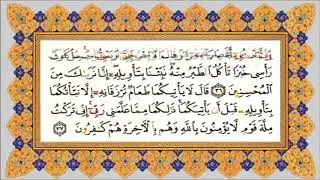 رَأۡسِي خُبۡزٗا تَأۡكُلُ ٱلطَّيۡرُ مِنۡهُۖ نَبِّئۡنَا بِتَأۡوِيلِهِۦٓۖ إِنَّا نَرَىٰكَ مِنَ
ٱلۡمُحۡسِنِينَ ٣٦ قَالَ لَا يَأۡتِيكُمَا طَعَامٞ تُرۡزَقَانِهِۦٓ إِلَّا نَبَّأۡتُكُمَا
بِتَأۡوِيلِهِۦ قَبۡلَ أَن يَأۡتِيَكُمَاۚ ذَٰلِكُمَا مِمَّا عَلَّمَنِي رَبِّيٓۚ إِنِّي تَرَكۡتُ
مِلَّةَ قَوۡمٖ لَّا يُؤۡمِنُونَ بِٱللَّهِ وَهُم بِٱلۡأٓخِرَةِ هُمۡ كَٰفِرُونَ ٣٧